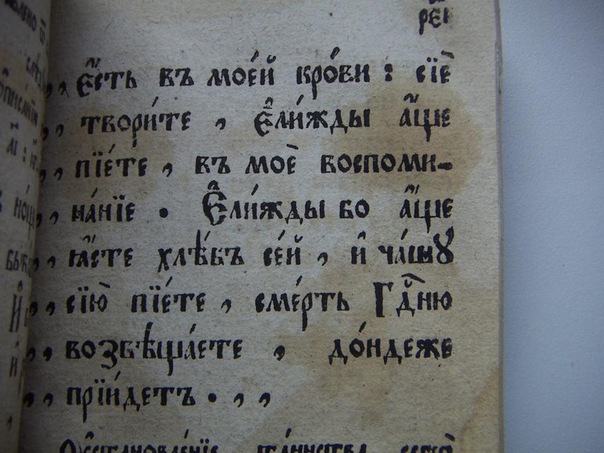 рє҃і
,, Є҆́сть въ мое́й кро́ви : сїѐ
,, твори́те , Є҆ли́жды а҆́ще
,, пїе́те , въ моѐ воспоми-
,, на́нїе . Є҆ли́жды бо а҆́ще
,, ꙗ҆́сте хлѣ́бъ се́й , и҆ ча́шꙋ
,, сїю̀ пїе́те , сме́рть Гдⷭ҇ню
,, возвѣща́ете , до́ндеже
,, прїи́детъ . , ,